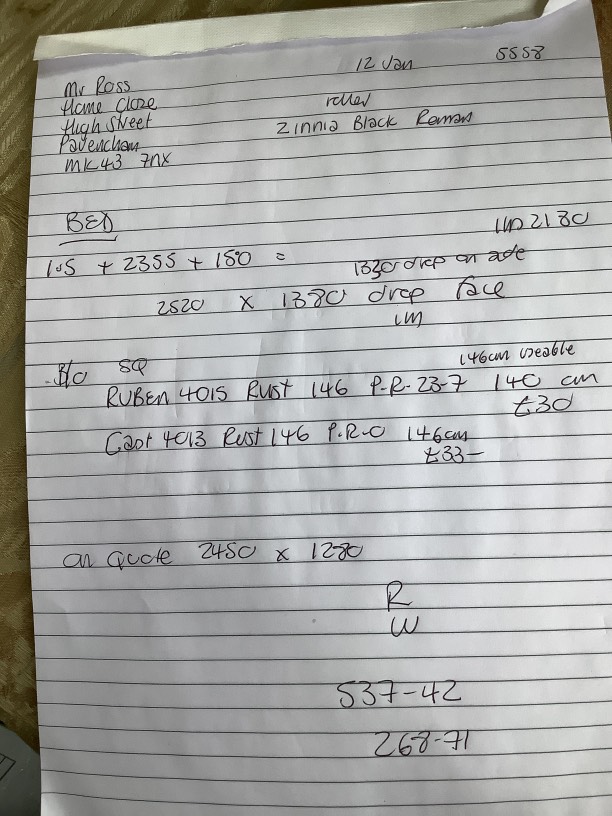 12 Jan 5558
Mr Ross
Home Close
High Street
Pavenham
MK43 7NX
roller
Zinnia Black Roman
BED
2180
105 + 2355 + 150 =
1330 drop on
2520 x 1380 drop face
SQ
146cm useable
RUBEN 4015 Rust 146 P.R-23-7 140 cm
£30
4013 Rust 146 P.R-0 146cm
£33-
on Quote 2450 x 1280
R
W
537-42
268-71